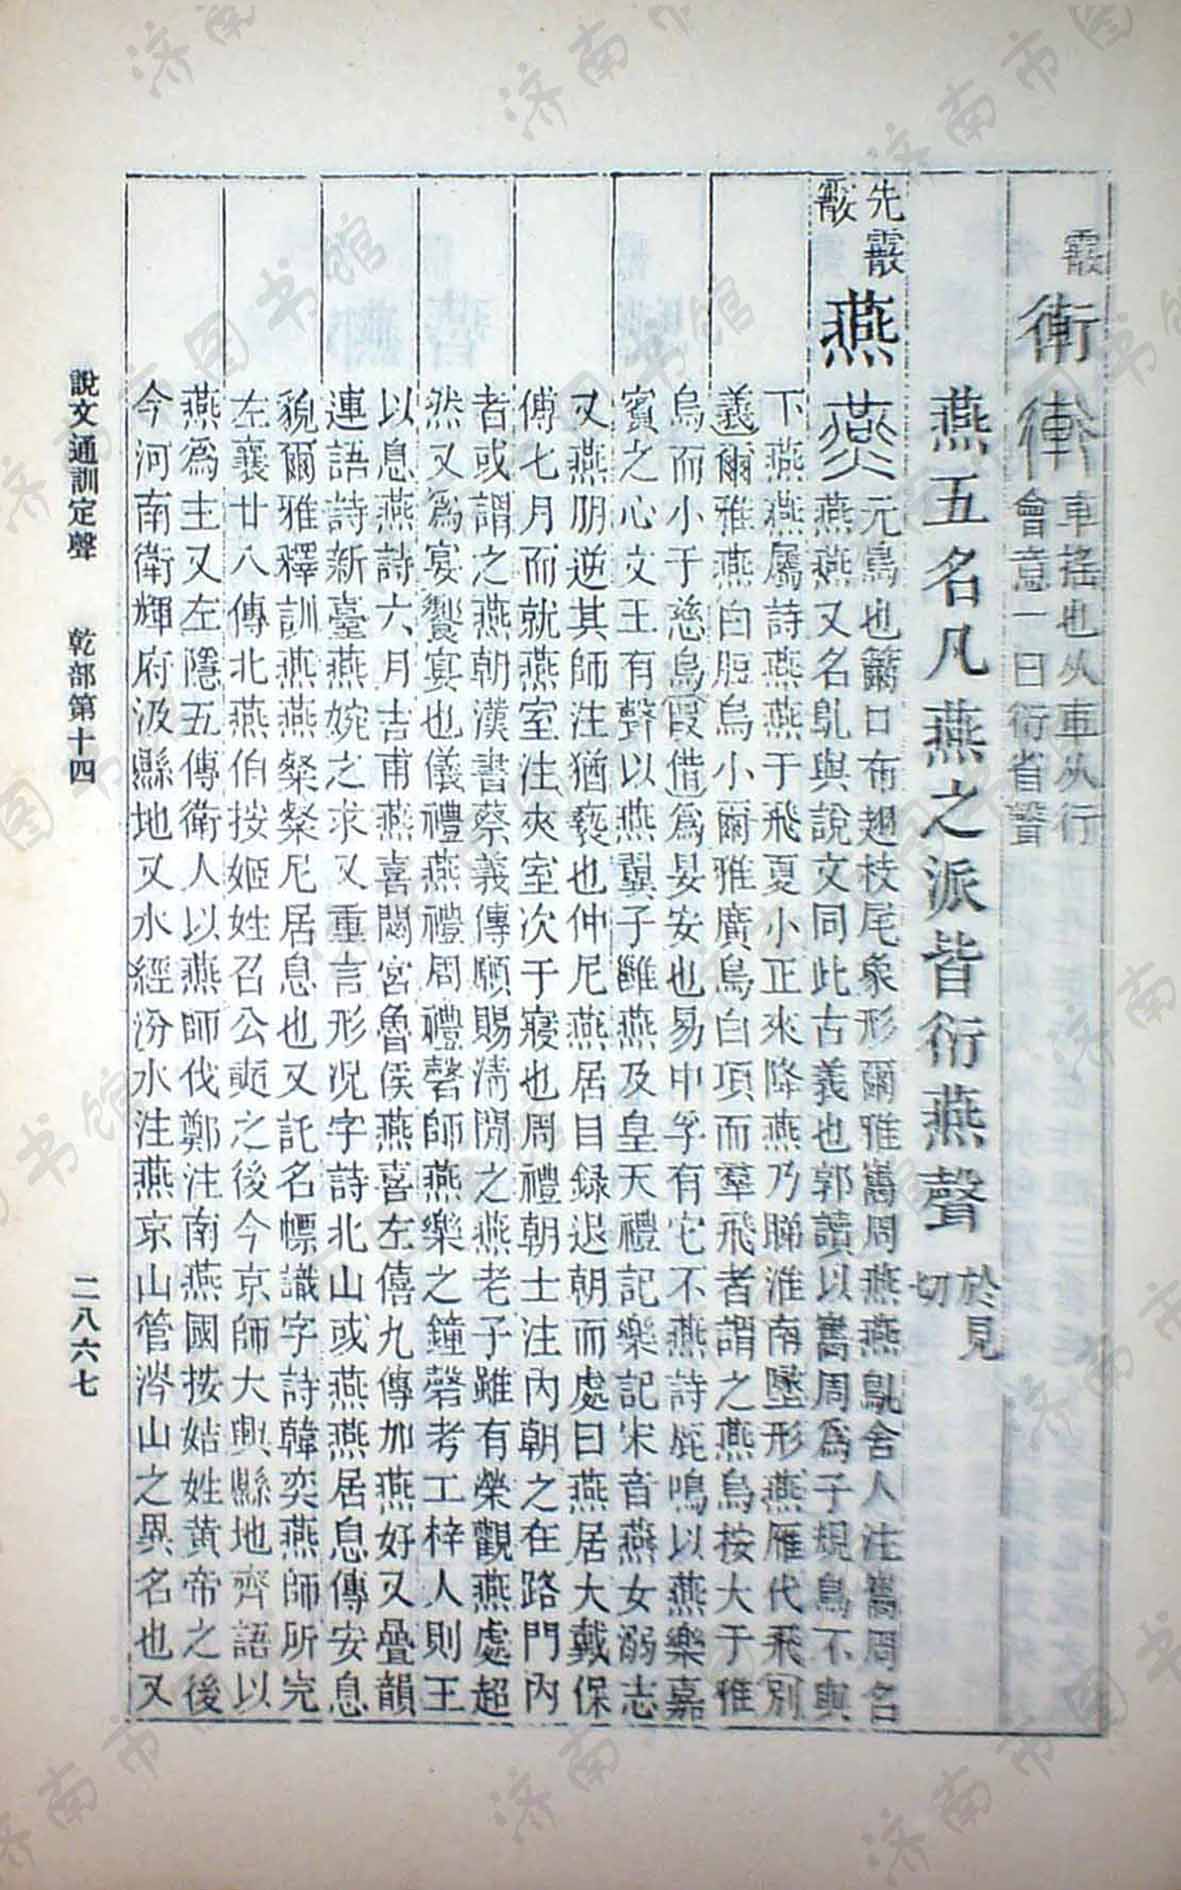 霰
衛
車搖也从車从行
會意一曰衍省聲
燕五名凡燕之派皆衍燕聲
於見
切
先霰
霰
燕
元鳥也籋口布翅枝尾象形爾雅巂周燕燕鳦舍人注巂周名
燕燕又名鳦與說文同此古義也郭讀以巂周爲子規鳥不與
下燕燕屬詩燕燕于飛夏小正來降燕乃睇淮南墬形燕雁代飛別
義爾雅燕白脰烏小爾雅廣鳥白項而羣飛者謂之燕烏按大于雅
烏而小于慈烏叚借爲晏安也易中孚有它不燕詩鹿鳴以燕樂嘉
賓之心文王有聲以燕翼子雝燕及皇天禮記樂記宋音燕女溺志
又燕朋逆其師注猶褻也仲尼燕居目録退朝而處曰燕居大戴保
傅七月而就燕室注夾室次于寢也周禮朝士注內朝之在路門內
者或謂之燕朝漢書蔡義傳願賜清閒之燕老子雖有榮觀燕處超
然又爲宴饗宴也儀禮燕禮周禮磬師燕樂之鐘磬考工梓人則王
以息燕詩六月吉甫燕喜閟宮魯侯燕喜左僖九傳加燕好又疊韻
連語詩新臺燕婉之求又重言形況字詩北山或燕燕居息傳安息
貌爾雅釋訓燕燕粲粲尼居息也又託名幖識字詩韓奕燕師所完
左襄廿八傳北燕伯按姬姓召公奭之後今京師大興縣地齊語以
燕爲主又左隱五傳衛人以燕師伐鄭注南燕國按姞姓黃帝之後
今河南衛輝府汲縣地又水經汾水注燕京山管涔山之異名也又
說文通訓定聲 乾部第十四 二八六七